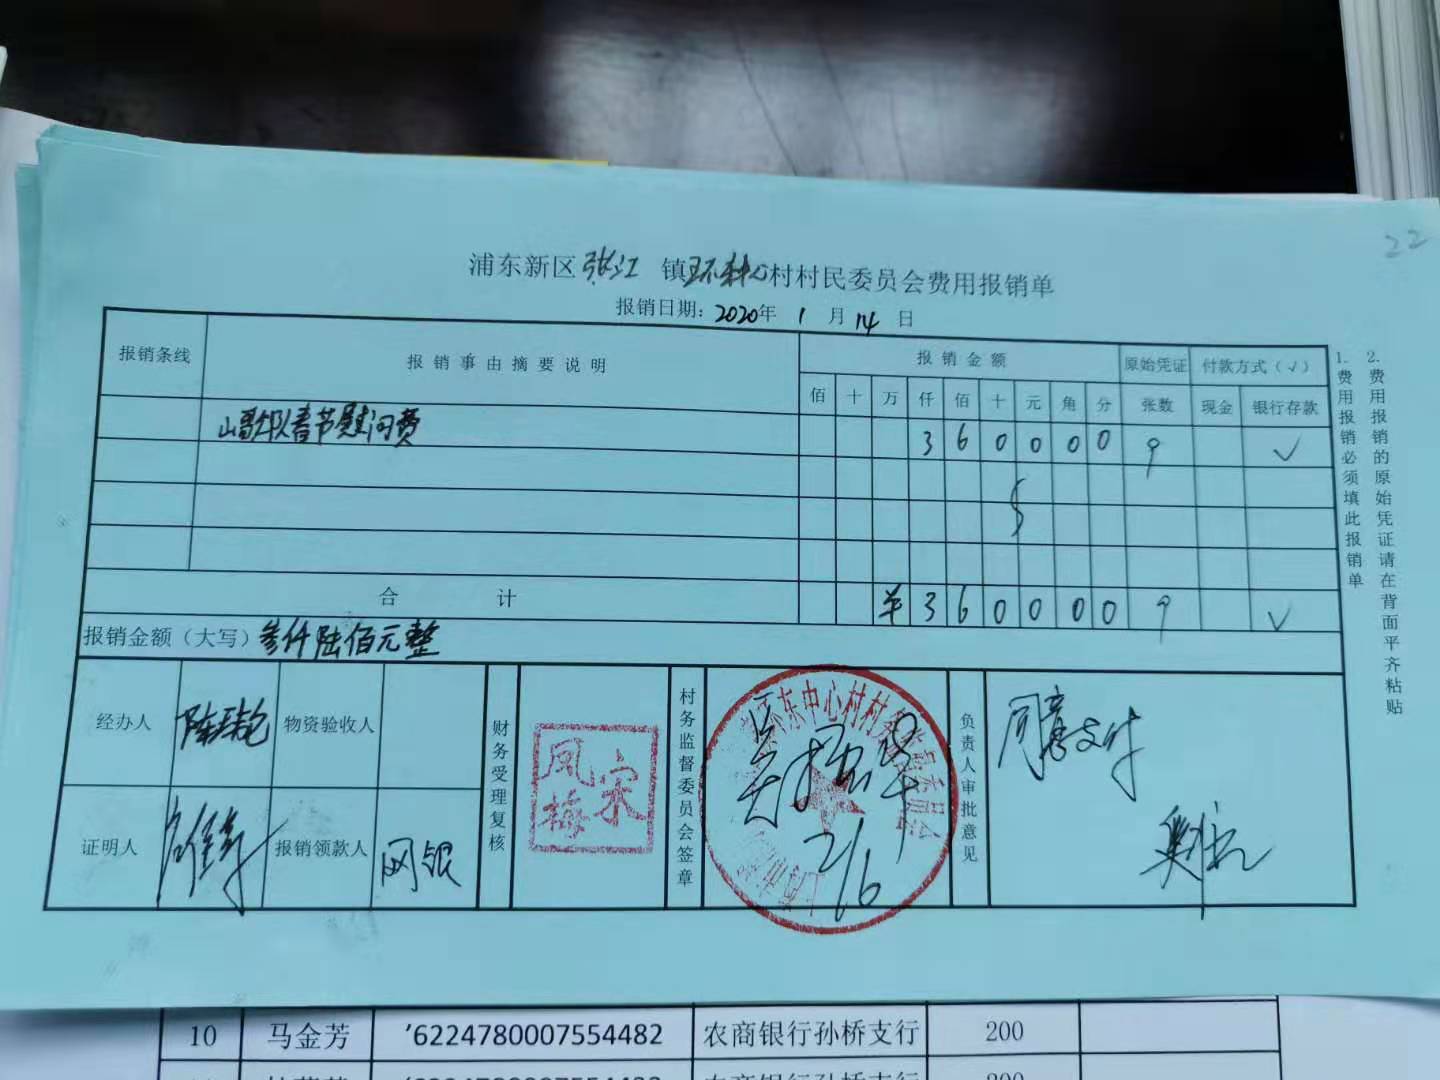 22
浦东新区张江 镇环东中心村村民委员会费用报销单
报销日期：2020年 1 月 14 日
报销条线 报销事由摘要说明 报销金额 原始凭证 付款方式（√）
佰 十 万 仟 佰 十 元 角 分 张数 现金 银行存款
山歌队春节慰问费 3 6 0 0 0 0 9 √
合 计 ¥ 3 6 0 0 0 0 9 √
报销金额（大写）叁仟陆佰元整
经办人 物资验收人
证明人 报销领款人 网银
财务受理复核
宋凤梅
村务监督委员会签章
东中心村村务监督委员会
2/6
负责人审批意见
同意支付
1.费用报销必须填此报销单
2.费用报销的原始凭证请在背面平齐粘贴
10 马金芳 ’6224780007554482 农商银行孙桥支行 200